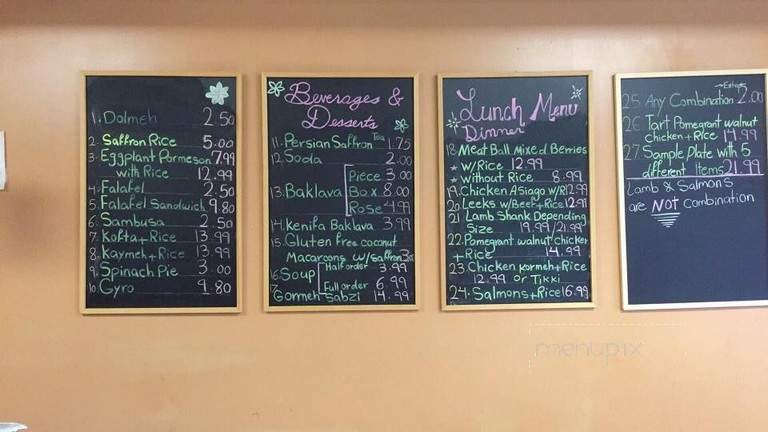 1. Dolmeh 2.50
2. Saffron Rice 5.00
3. Eggplant Pormeson 7.99
with Rice 12.99
4. Falafel 2.50
5. Falafel Sandwich 9.80
6. Sambusa 2.50
7. Kofta+Rice 13.99
8. Kaymeh+Rice 13.99
9. Spinach Pie 3.00
10. Gyro 9.80
Beverages &
Desserts
11. Persian Saffron Tea 1.75
12. Soda 2.00
13. Baklava
Piece 3.00
Box 8.00
Rose 4.99
14. Kenifa Baklava 3.99
15. Gluten free coconut
Macaroons w/saffron
16. Soup
Half order 3.99
Full order 6.99
17. Gormeh Sabzi 14.99
Lunch Menu
Dinner
18. Meat Ball Mixed Berries
* w/Rice 12.99
* without Rice 8.99
19. Chicken Asiago w/R 12.99
20. Leeks w/Beef+Rice 12.91
21. Lamb Shank Depending
Size 19.99/21.99
22. Pomegrant walnut chicken
+ Rice 14.99
23. Chicken Kormeh+Rice
12.99 or Tikki
24. Salmons+Rice 16.99
25. Any Combination 2.00
26. Tart Pomegrant walnut
chicken + Rice 14.99
27. Sample Plate with 5
different Items 21.99
Lamb & Salmons
are NOT combination
menupix